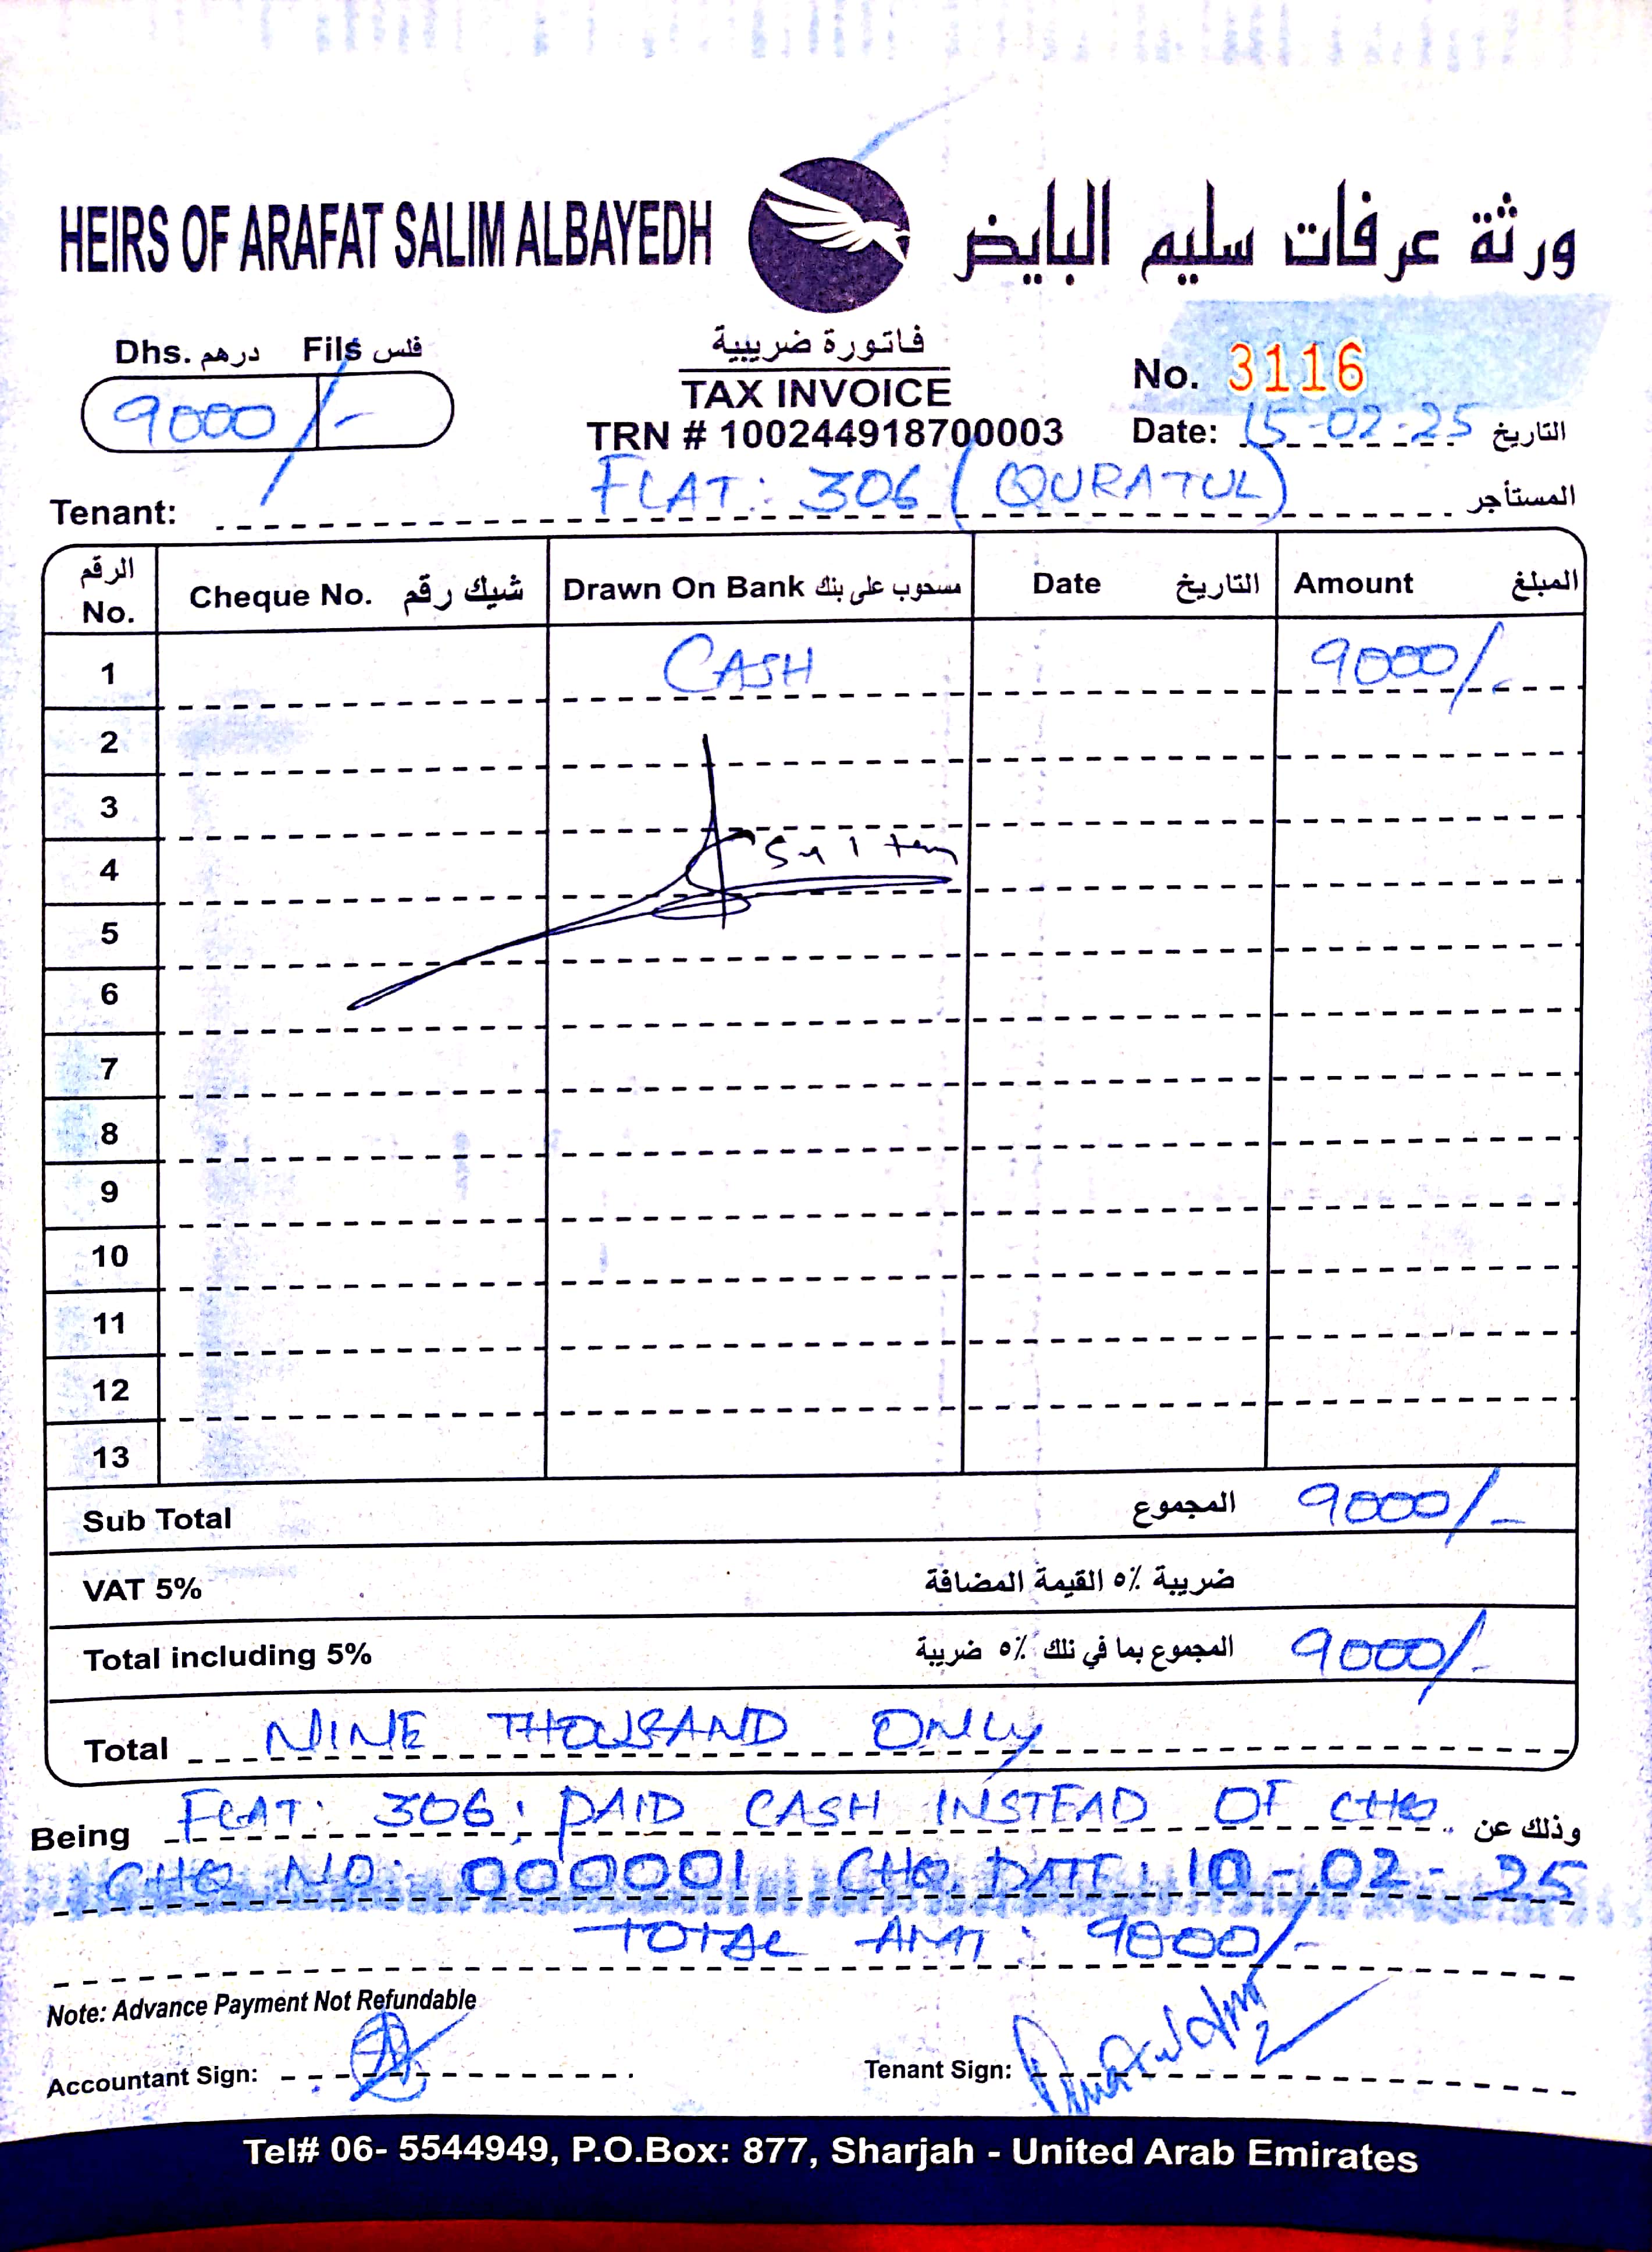 HEIRS OF ARAFAT SALIM ALBAYEDH ورثة عرفات سليم البايض
Dhs. درهم Fils فلس
9000/-
فاتورة ضريبية
TAX INVOICE
TRN # 100244918700003
No. 3116
Date: 15-02-25 التاريخ
Tenant: FLAT: 306 (QURATUL) المستأجر
الرقم No. Cheque No. شيك رقم Drawn On Bank مسحوب على بنك Date التاريخ Amount المبلغ
1 CASH 9000/-
2
3
4
5
6
7
8
9
10
11
12
13
Sub Total المجموع 9000/-
VAT 5% ضريبة ٥٪ القيمة المضافة
Total including 5% المجموع بما في ذلك ٥٪ ضريبة 9000/-
Total NINE THOUSAND ONLY
Being FLAT: 306; PAID CASH INSTEAD OF CHQ وذلك عن
CHQ NO: 000001 CHQ DATE: 10-02-25
TOTAL AMT: 9000/-
Note: Advance Payment Not Refundable
Accountant Sign: Tenant Sign:
Tel# 06- 5544949, P.O.Box: 877, Sharjah - United Arab Emirates